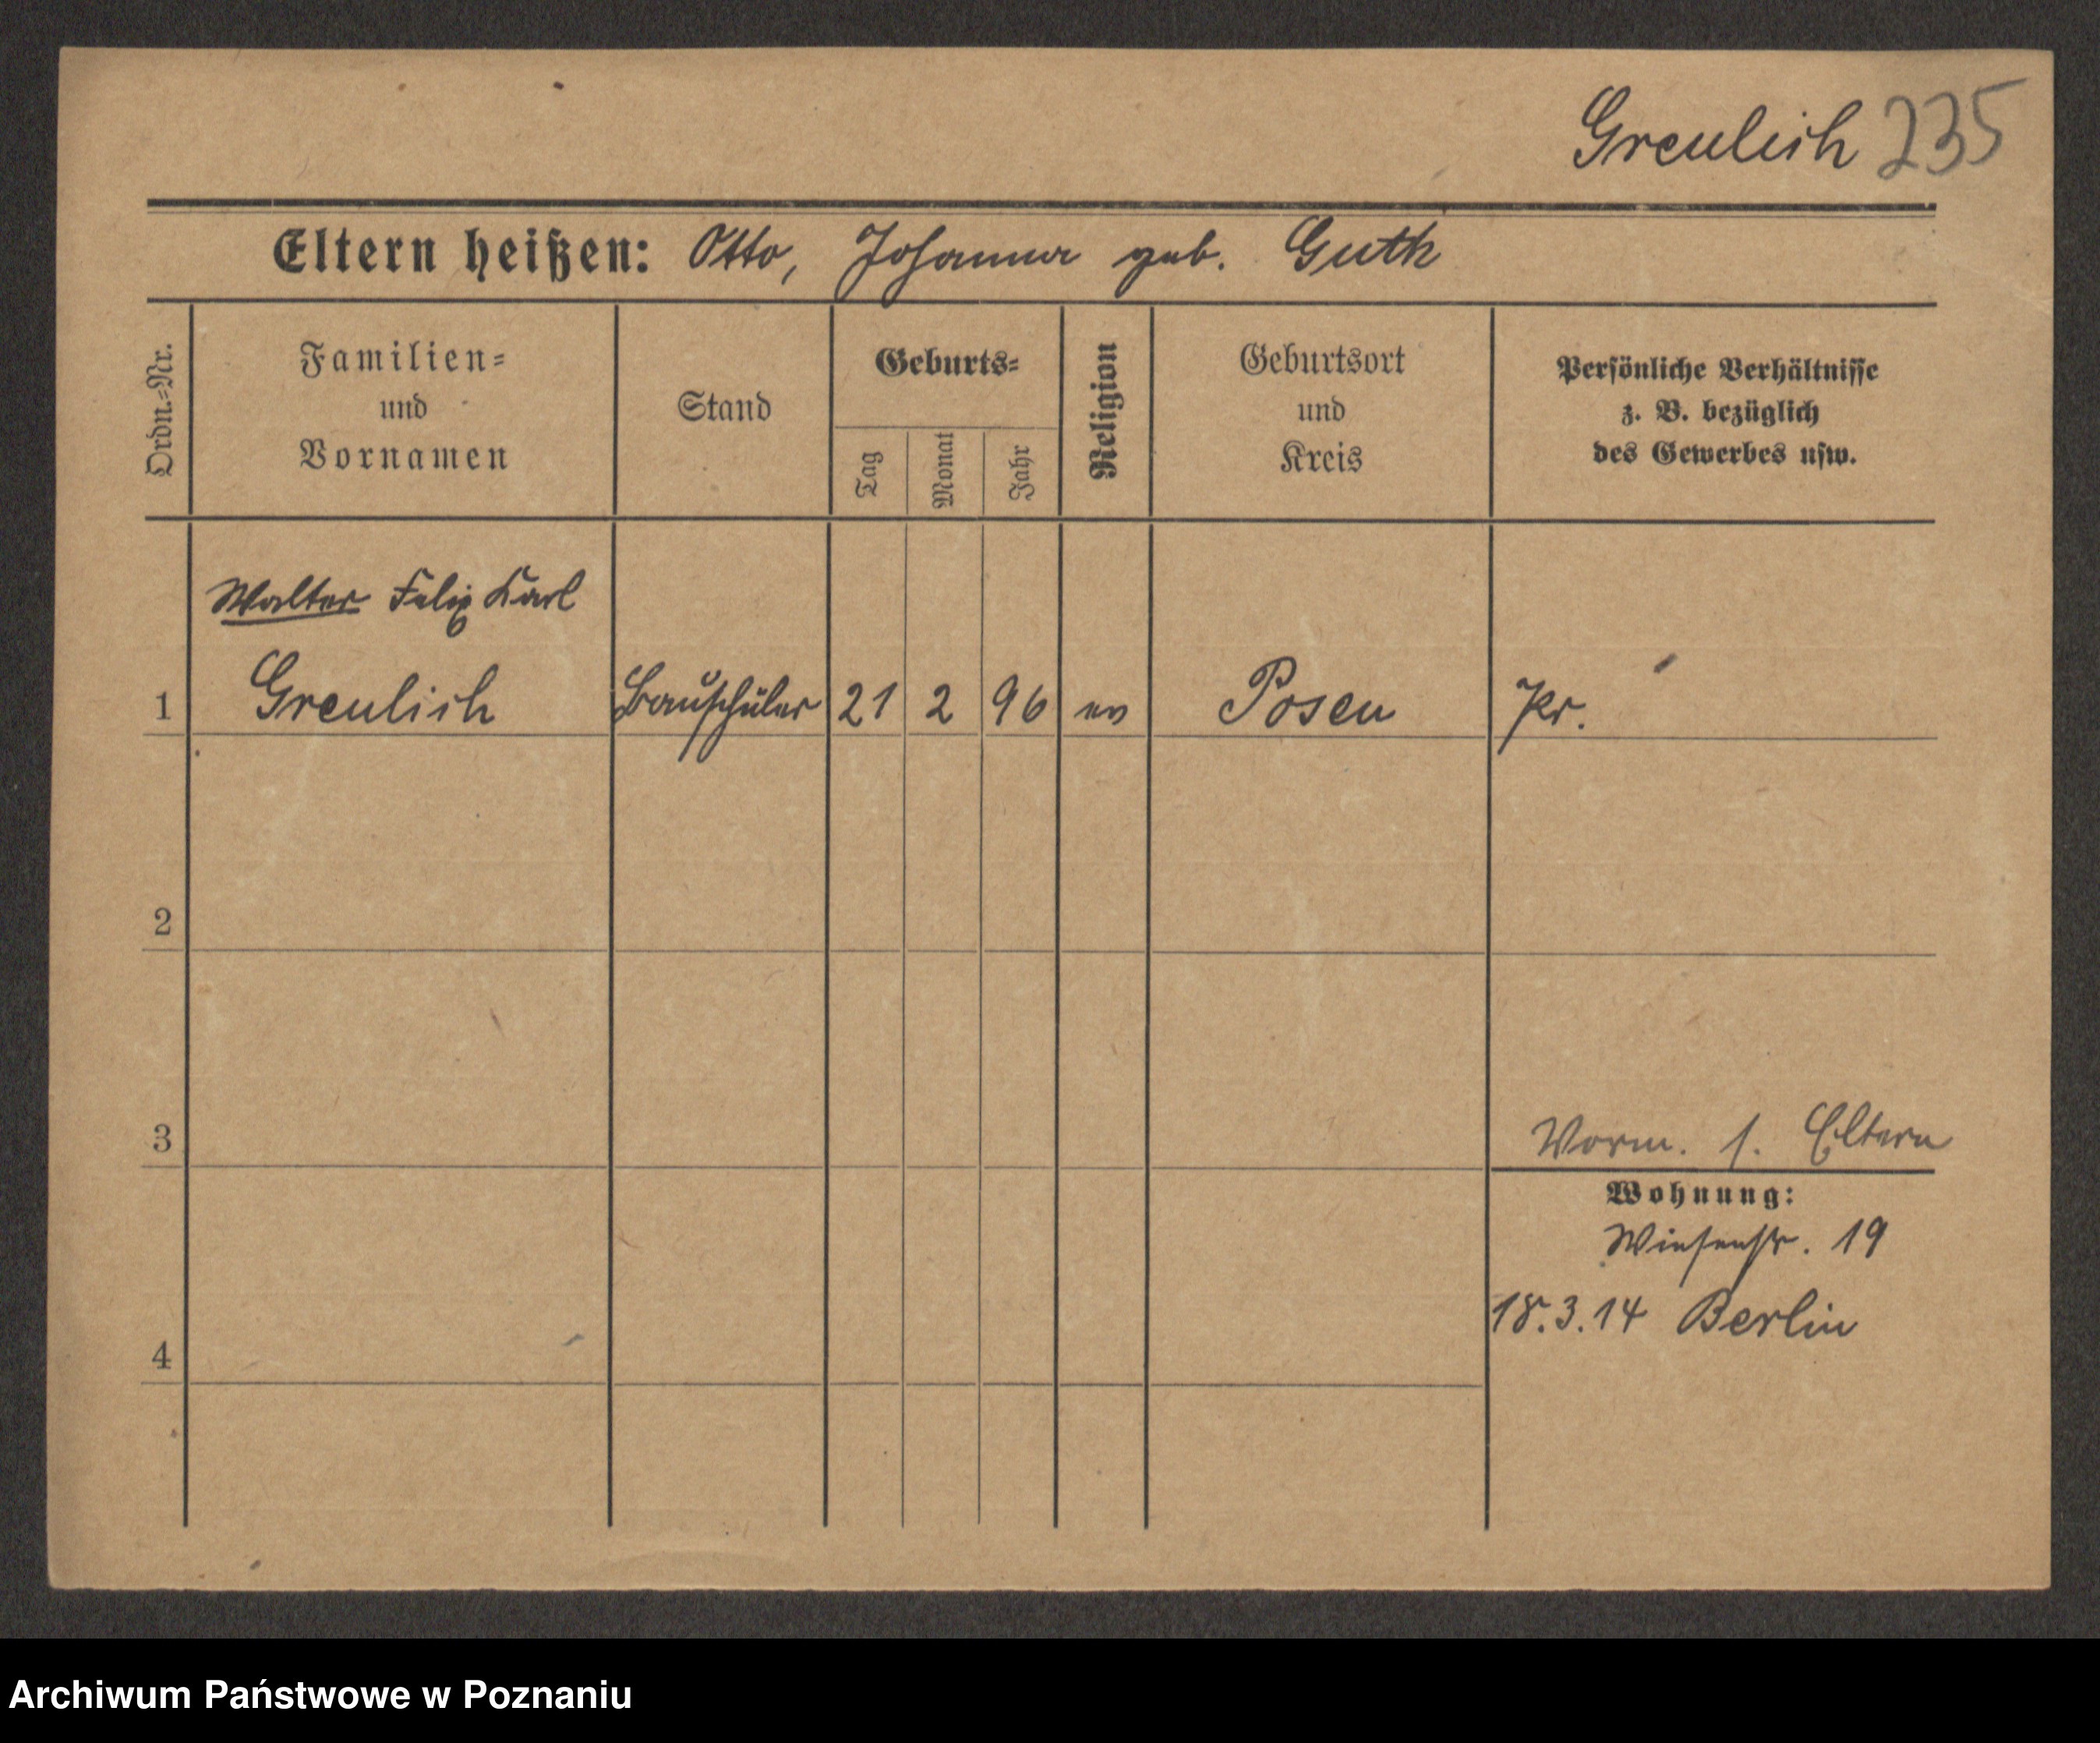 Greulich 235
Eltern heißen: Otto, Johanna geb. Guth
Ordn.-Nr.
Familien-
und
Vornamen
Stand
Geburts-
Tag
Monat
Jahr
Religion
Geburtsort
und
Kreis
Persönliche Verhältnisse
z. B. bezüglich
des Gewerbes usw.
Walter Felix Karl
1 Greulich Bauschüler 21 2 96 ev Posen Pr.
2
3
Vorm. s. Eltern
Wohnung:
Wiesenstr. 19
18.3.14 Berlin
4
Archiwum Państwowe w Poznaniu